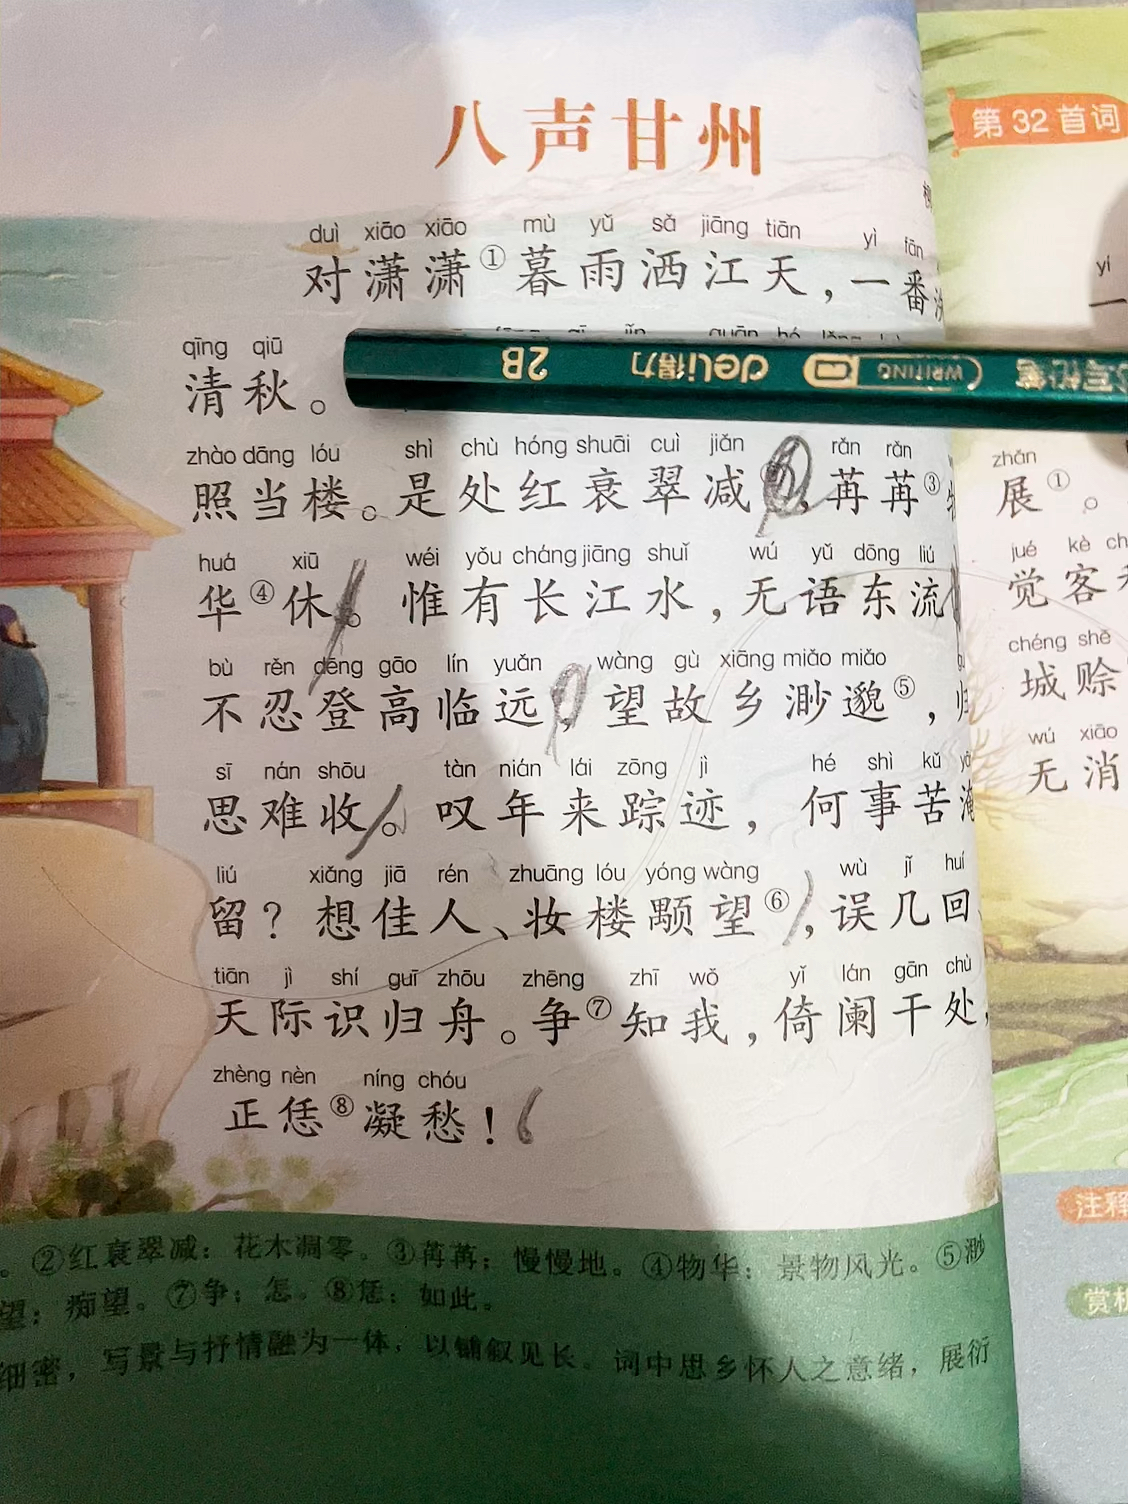 八声甘州
第32首词
duì xiāo xiāo mù yǔ sǎ jiāng tiān yì fān
对潇潇①暮雨洒江天，一番
qīng qiū
清秋。
2B 得力 deli WRITING
zhào dāng lóu shì chù hóng shuāi cuì jiǎn rǎn rǎn
照当楼。是处红衰翠减，苒苒③
huá xiū wéi yǒu cháng jiāng shuǐ wú yǔ dōng liú
华④休。惟有长江水，无语东流
bù rěn dēng gāo lín yuǎn wàng gù xiāng miǎo miǎo
不忍登高临远，望故乡渺邈⑤，归
sī nán shōu tàn nián lái zōng jì hé shì kǔ
思难收。叹年来踪迹，何事苦淹
liú xiǎng jiā rén zhuāng lóu yóng wàng wù jǐ huí
留？想佳人、妆楼颙望⑥，误几回、
tiān jì shí guī zhōu zhēng zhī wǒ yǐ lán gān chù
天际识归舟。争⑦知我，倚阑干处，
zhèng nèn níng chóu
正恁⑧凝愁！
。②红衰翠减：花木凋零。③苒苒：慢慢地。④物华：景物风光。⑤渺
望：痴望。⑦争：怎。⑧恁：如此。
细密，写景与抒情融为一体，以铺叙见长。词中思乡怀人之意绪，展衍
yí
一
zhǎn
展①。
jué kè
觉客
chéng shē
城赊
wú xiāo
无消
注释
赏析